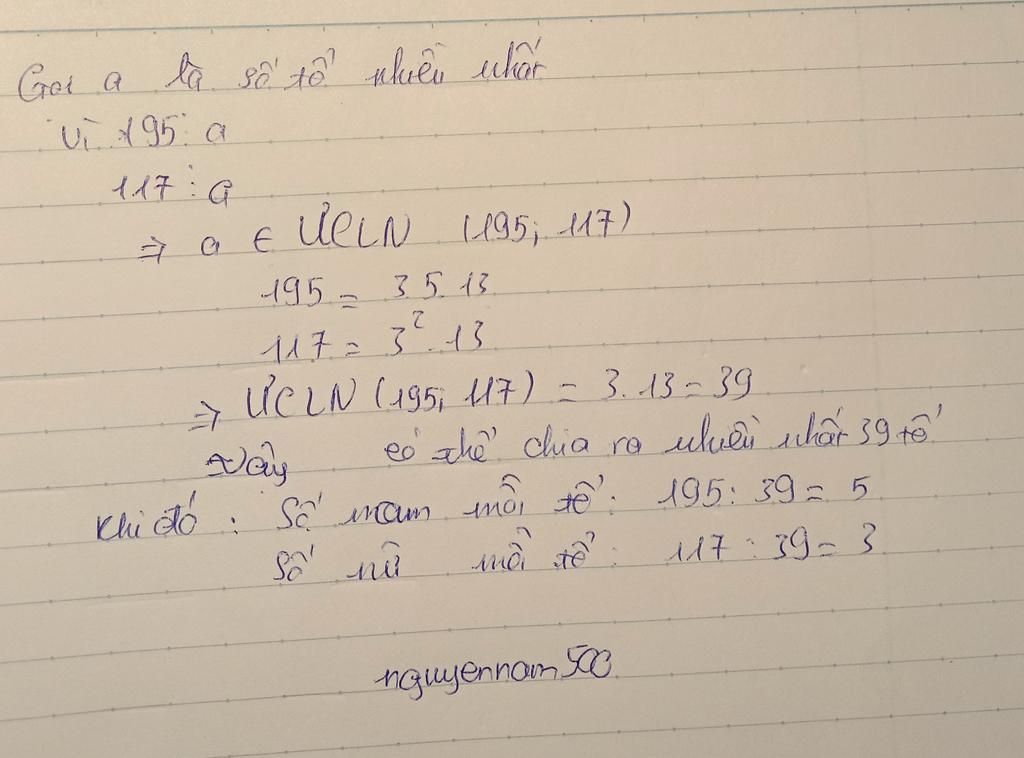 Gọi a là số tổ nhiều nhất
Vì 195 ⋮ a
117 ⋮ a
⇒ a ∈ ƯCLN (195; 117)
195 = 3.5.13
117 = 3².13
⇒ ƯCLN (195; 117) = 3.13 = 39
Vậy có thể chia ra nhiều nhất 39 tổ
Khi đó : Số nam mỗi tổ : 195 : 39 = 5
Số nữ mỗi tổ : 117 : 39 = 3
nguyennam500